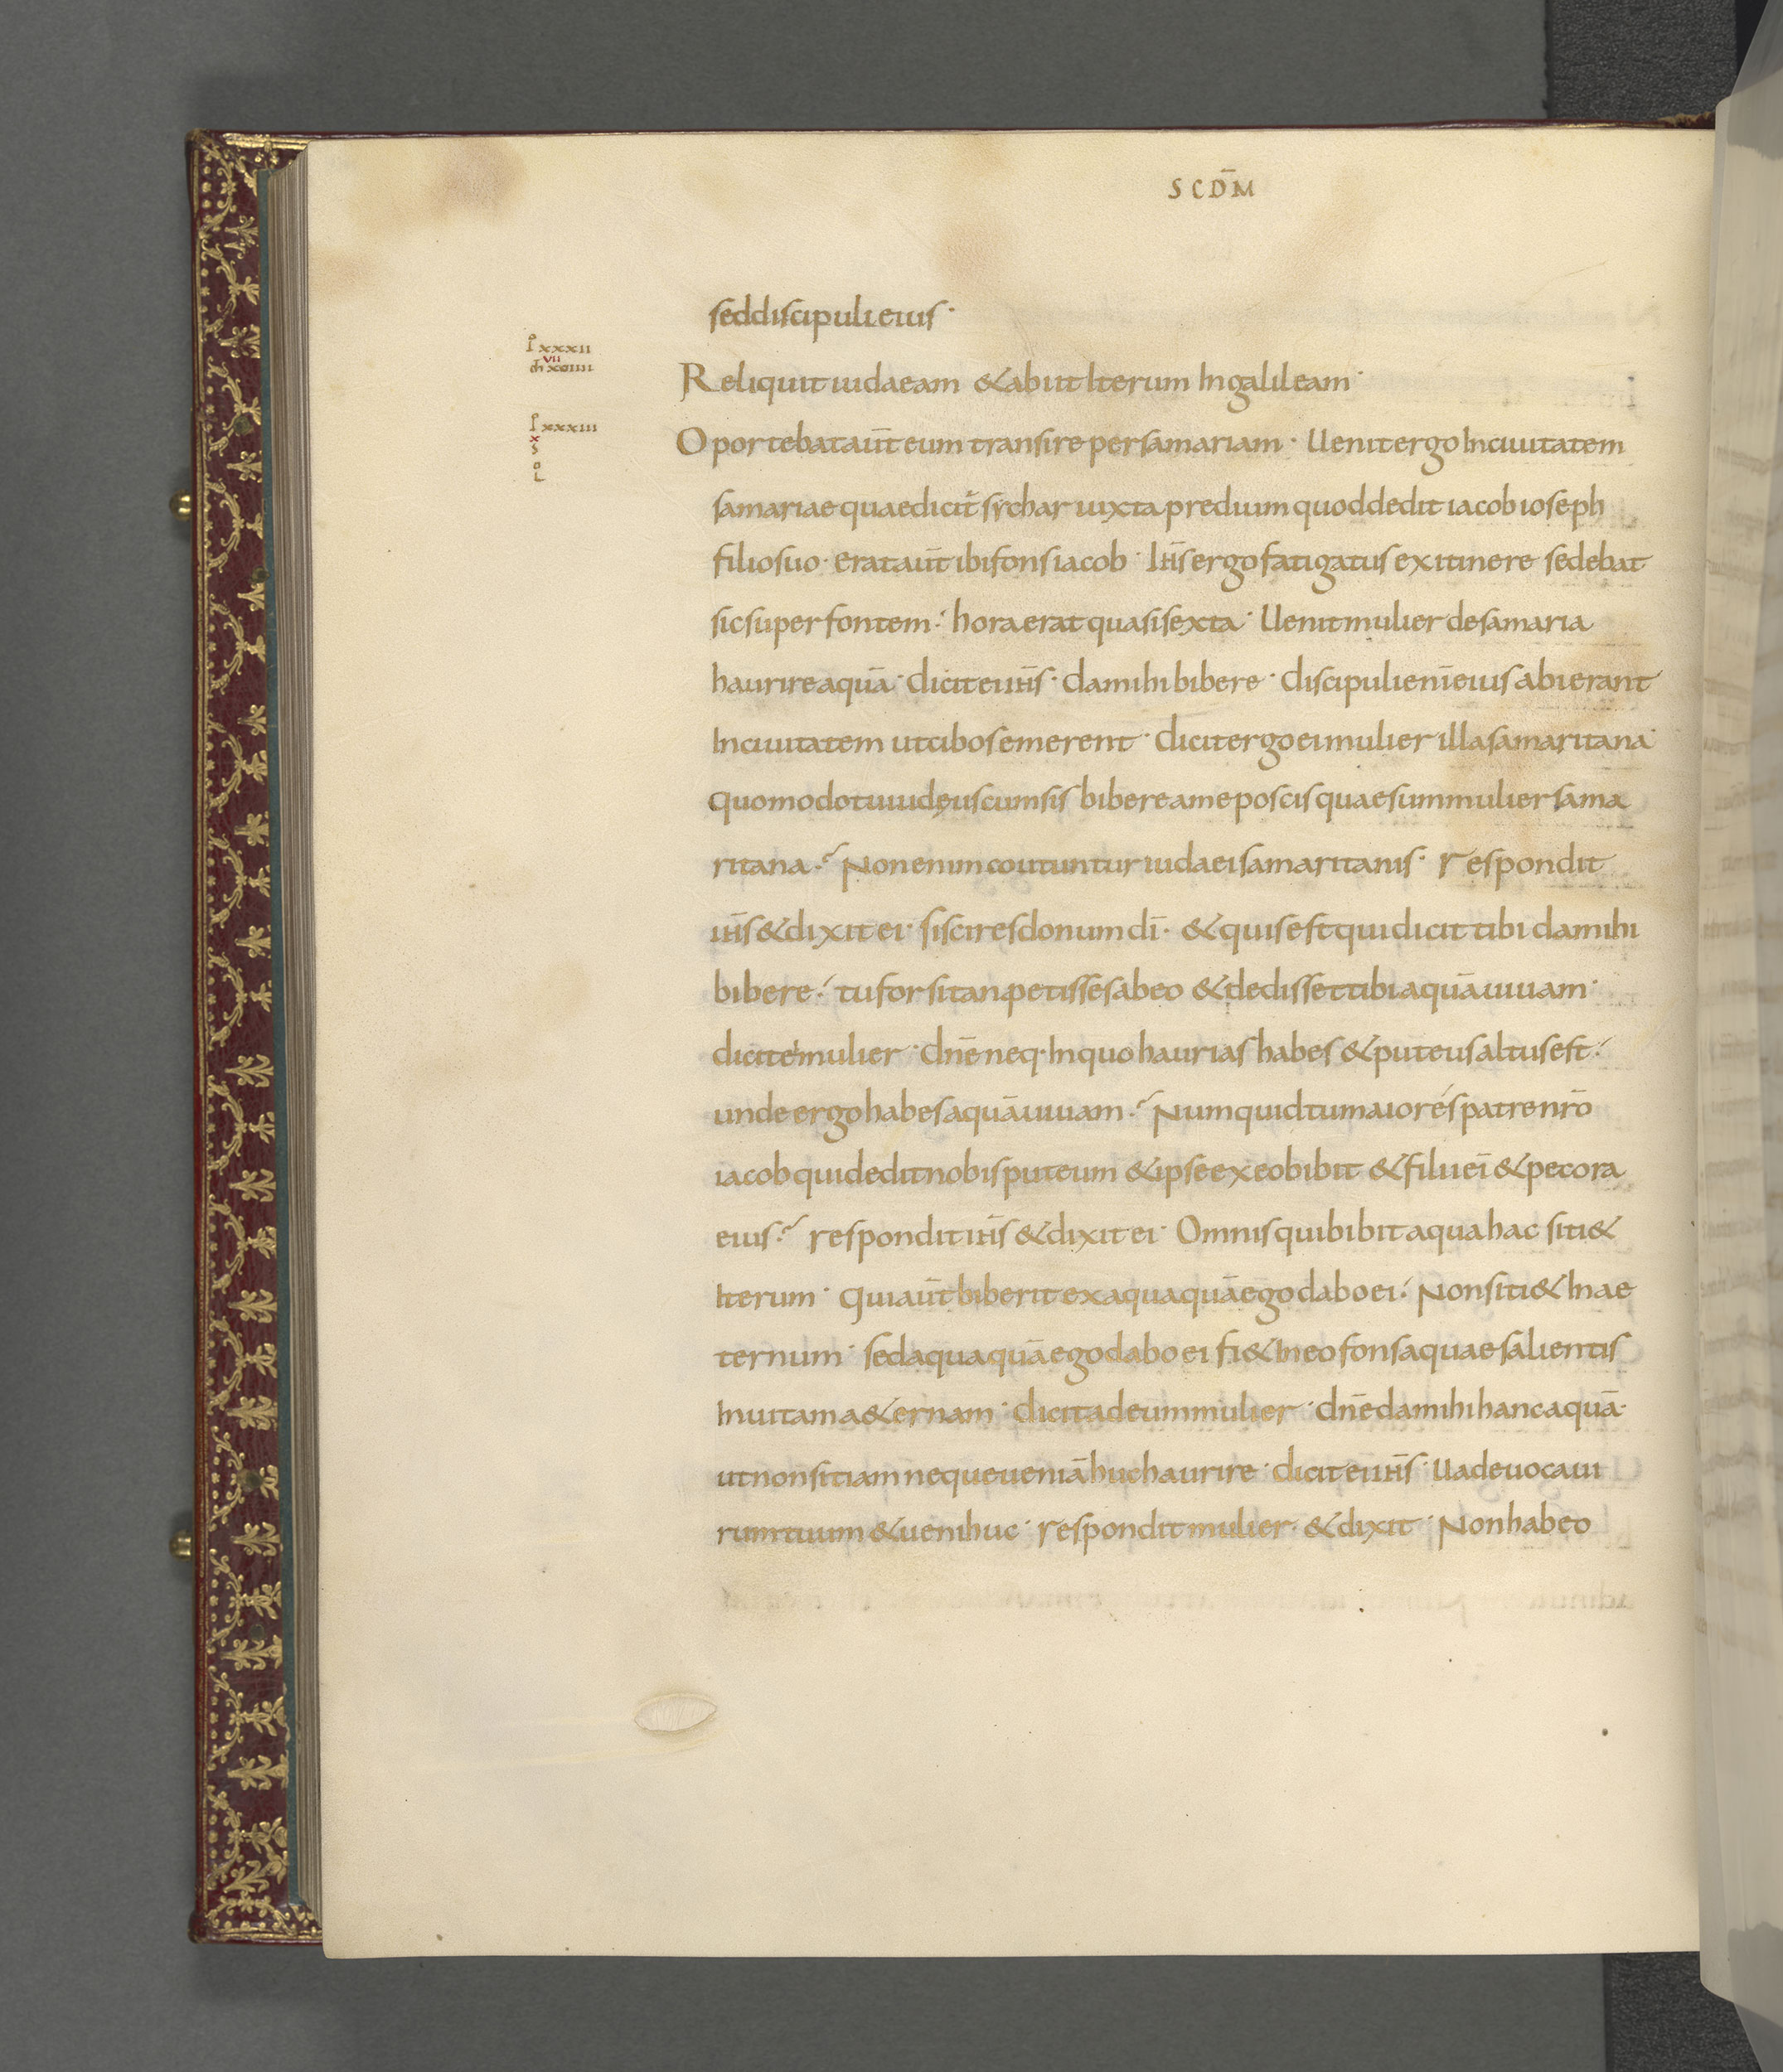 SCD̄M
sed discipuli eius·
Io xxxii
VII
Mt xxiiii
Reliquit iudaeam & abiit Iterum In galileam·
Io xxxiii
x
S
o
L
Oportebat aut̄ eum transire per samariam· Uenit ergo In ciuitatem
samariae quae dicit̄ sychar iuxta predium quod dedit iacob ioseph
filio suo· erat aut̄ ibi fons iacob· Ih̄s ergo fatigatus ex itinere sedebat
sic super fontem· hora erat quasi sexta· Uenit mulier de samaria
haurire aquā· dicit ei ih̄s· da mihi bibere· discipuli eni̅ eius abierant
In ciuitatem ut cibos emerent· dicit ergo ei mulier illa samaritana·
quomodo tu iudęus cum sis bibere a me poscis quae sum mulier sama
ritana·? Non enim coutuntur iudaei samaritanis· respondit
ih̄s & dixit ei· si scires donum dī· & quis est qui dicit tibi da mihi
bibere·´ tu forsitan petisses ab eo & dedisset tibi aquā uiuam·
dicit ei mulier· dn̄e neq· In quo haurias habes & puteus altus est·´
unde ergo habes aquā uiuam·? Numquid tu maior és patre nr̄o
iacob qui dedit nobis puteum & ipse ex eo bibit & filii ei̅ & pecora
eius·? respondit ih̄s & dixit ei· Omnis qui bibit aqua hac siti&
Iterum· qui aut̄ biberit ex aqua quā ego dabo ei·´ Non siti& In ae
ternum· sed aqua quā ego dabo ei fi& In eo fons aquae salientis
In uitam a&ernam· dicit ad eum mulier· dn̄e da mihi hanc aquā·
ut non sitiam neque ueniā huc haurire· dicit ei ih̄s· Uade uoca ui
rum tuum & ueni huc· respondit mulier· & dixit· Non habeo